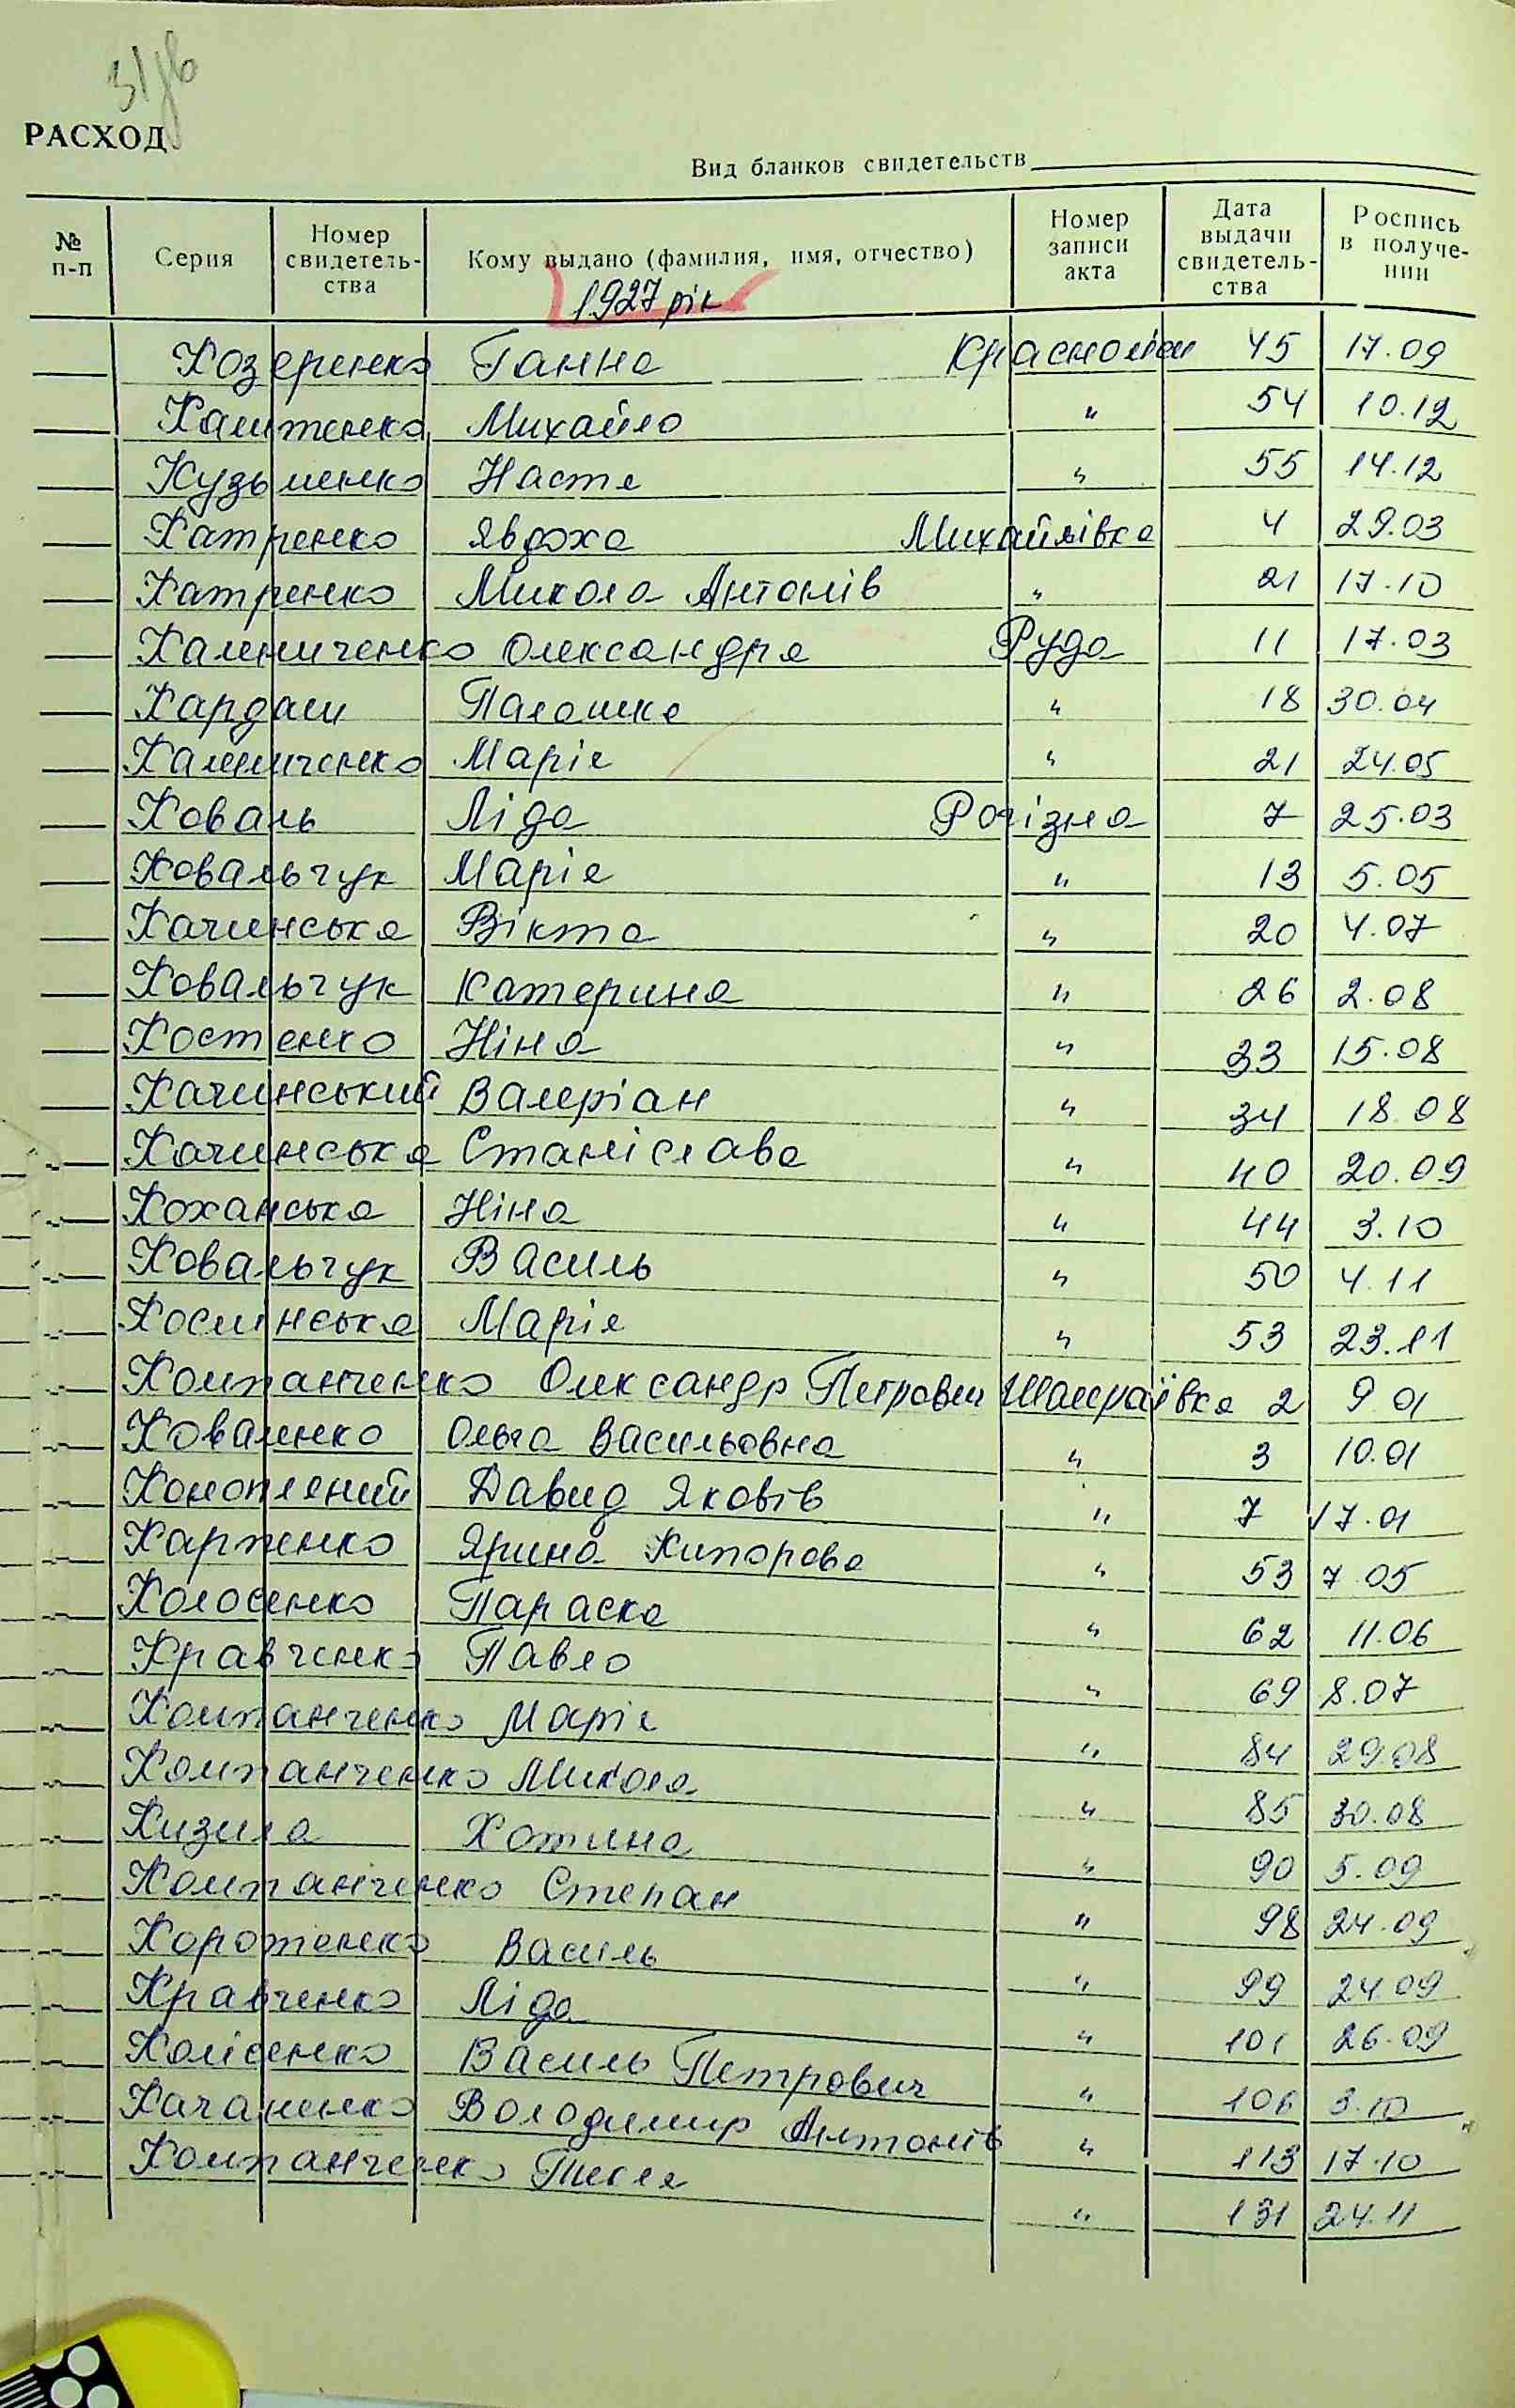 РАСХОД
Вид бланков свидетельств
№ п-п Серия Номер свидетель-ства Кому выдано (фамилия, имя, отчество) Номер записи акта Дата выдачи свидетель-ства Роспись в получе-нии
1927 рік
Козеренко Ганна 45 17.09
Каштенко Михайло " 54 10.12
Кузьменко Настя " 55 14.12
Катренко Явдоха Михайлівка 4 29.03
Катренко Микола Антонів " 21 17.10
Калениченко Олександра Руда 11 17.03
Кардаш Палашка " 18 30.04
Калениченко Марія " 21 24.05
Коваль Ліда Рогізна 7 25.03
Ковальчук Марія " 13 5.05
Качинська Вікта " 20 4.07
Ковальчук Катерина " 26 2.08
Костенко Ніна " 33 15.08
Качинський Валеріан " 34 18.08
Качинська Станіслава " 40 20.09
Коханська Ніна " 44 3.10
Ковальчук Василь " 50 4.11
Космінська Марія " 53 23.11
Компанченко Олександр Петрович Шамраївка 2 9.01
Коваленко Ольга Васильовна " 3 10.01
Конопляний Давид Яковів " 7 17.01
Карпенко Ярина Кипорова " 53 7.05
Колосенко Параска " 62 11.06
Кравченко Павло " 69 8.07
Компанченко Марія " 84 29.08
Компанченко Микола " 85 30.08
Кизила Хотина " 90 5.09
Компанченко Степан " 98 24.09
Коротенко Василь " 99 24.09
Кравченко Ліда " 101 26.09
Колісенко Василь Петрович " 106 3.10
Качаненко Володимир Антонів " 113 17.10
Компанченко Текля " 131 24.11